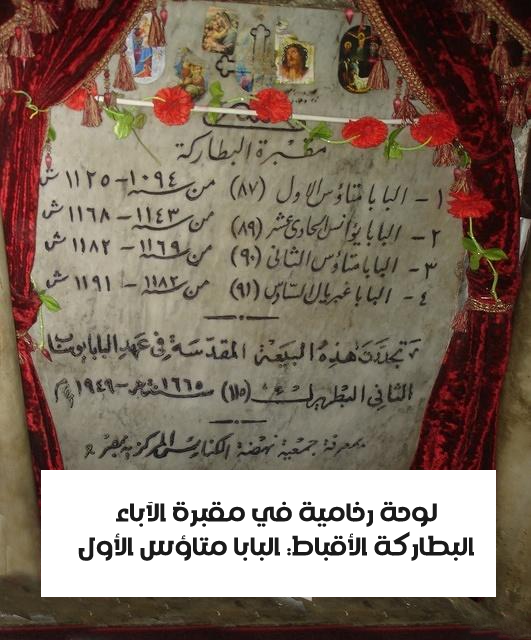 مقبرة البطاركة
١- البابا متاؤس الاول (٨٧) من سنة ١٠٩٤ - ١١٢٥ ش
٢- البابا يوأنس الحادى عشر (٨٩) من سنة ١١٤٣ - ١١٦٨ ش
٣- البابا متاؤس الثانى (٩٠) من سنة ١١٦٩ - ١١٨٢ ش
٤- البابا غبريال السادس (٩١) من سنة ١١٨٢ - ١١٩١ ش
تجددت هذه البيعة المقدسة فى عهد البابا يوساب
الثانى البطريرك (١١٥) سنة ١٦٦٥ ش - ١٩٤٩ م
بمعرفة جمعية نهضة الكنايس المركزية بمصر
لوحة رخامية في مقبرة الآباء
البطاركة الأقباط: البابا متاؤس الأول